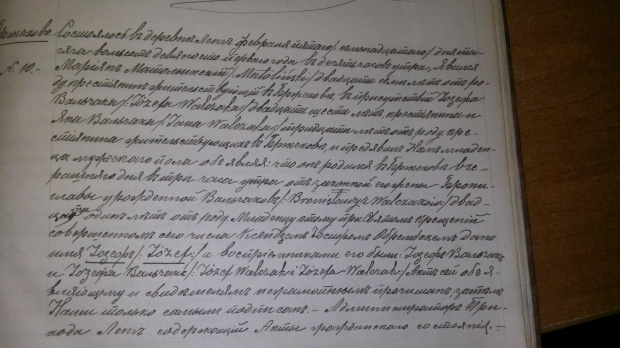 Бржехово Состоялось въ деревнѣ Летъ февраля пятаго /семнадцатаго/ дня тысяча
восемьсотъ девяносто перваго года въ десять часовъ утра. Явился
№ 10.- Марiянъ Матолинскiй /Matoliński/ двадцати семи лѣтъ отъ роду
крестьянинъ жительствующiй въ Бржехово, въ присутствiи Iозефа
Вальчака /Józefa Walczaka/ двадцати шести лѣтъ, крестьянина и
Яна Вальчака /Jana Walczaka/ тридцати лѣтъ отъ роду, крестьянина
жительствующихъ въ Бржехово, и предъявилъ Намъ младенца
мужескаго пола объявляя: что онъ родился въ Бржехово вчерашняго
дня въ три часа утра отъ законной его жены Брониславы
урожденной Вальчакъ /Bronisławy Walczaków/ двадцати
одинъ лѣтъ отъ роду. Младенцу этому при Святомъ Крещенiи
совершенномъ его числа Ксендзомъ дано
имя Iозефъ /Józef/ и воспрiемниками его были: Iозефъ Вальчакъ
и Iозефа Вальчакъ /Józef Walczak i Józefa Walczak/. Актъ сей объявляющему
и свидѣтелямъ неграмотнымъ прочитанъ, затѣмъ
Нами только самыми подписанъ. - Администраторъ Прихода
Летъ содержащiй Акты гражданскаго состоянiя. -